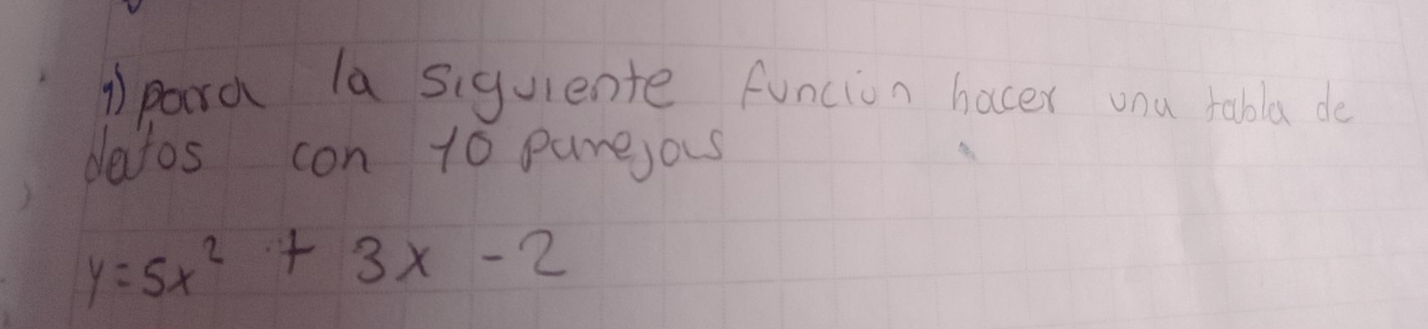 1) para la siguiente funcion hacer una tabla de
datos con 10 parejas
y=5x² + 3x - 2